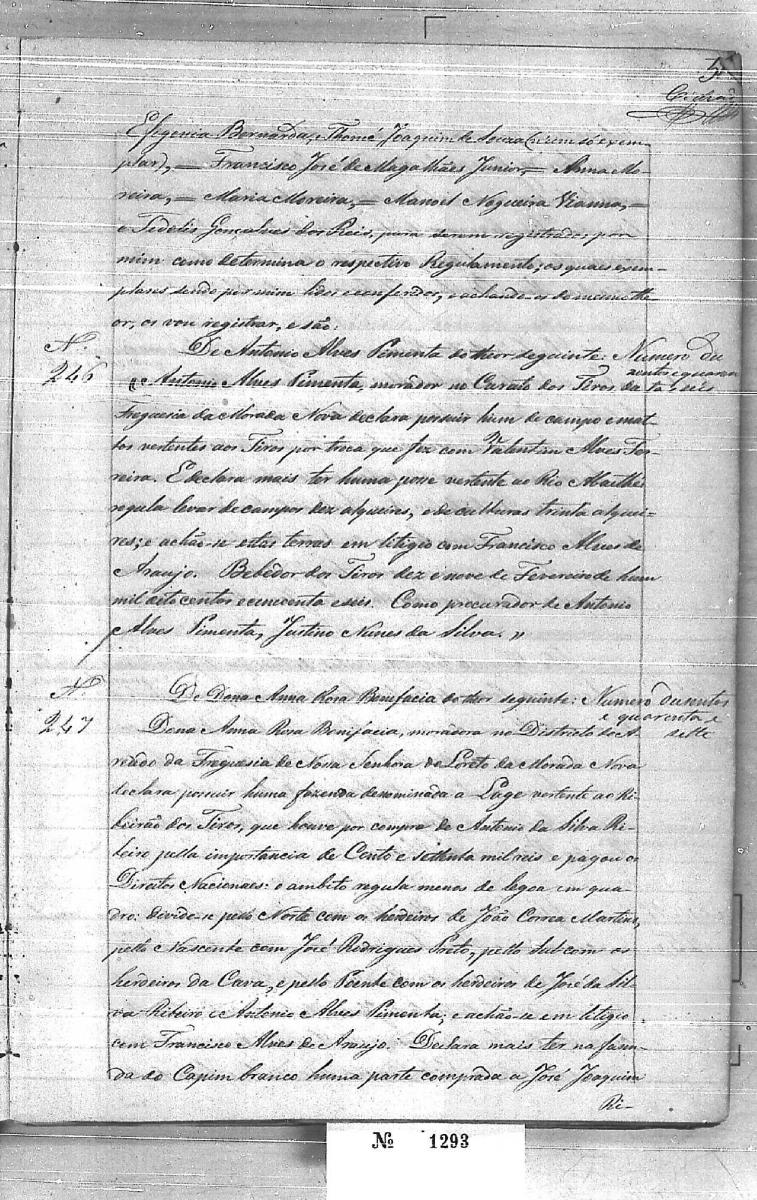 5
Efigenia Bernarda, e Thomé Joaquim de Souza (n'um só exem-
plar), = Francisco José de Magalhães Junior, = Anna Mo-
reira, = Maria Moreira, = Manoel Nogueira Vianna, =
e Fidelis Gonçalves dos Reis, para serem registrados por
mim como determina o respectivo Regulamento; os quaes exem-
plares sendo por mim lidos e conferidos, e achando-os do mesmo the-
or, os vou registrar, e são:
Nº 246
De Antonio Alves Pimenta do theor seguinte. Numero du
zentos e quaren
ta, e seis
Antonio Alves Pimenta, morador no Curato dos Tiros da
Freguesia da Morada Nova declara possuir hum de campo e mat-
tos vertentes aos Tiros por troca que fez com Valentim Alves Fer-
reira. E declara mais ter huma posse vertente ao Rio Abaethe
regula levar de campos dez alqueires, e de culturas trinta alquei-
res; e achão-se estas terras em litigio com Francisco Alves de
Araujo. Bebedor dos Tiros dez e nove de Fevereiro de hum
mil oito centos e cincoenta e seis. Como procurador de Antonio
Alves Pimenta, Justino Nunes da Silva. "
Nº 247
De Dona Anna Rosa Benifacia do theor seguinte: Numero dusentos
e quarenta e
sette
Dona Anna Rosa Bonifacia, moradora no Districto do A-
reado da Freguesia de Nossa Senhora do Loreto da Morada Nova
declara possuir huma fazenda denominada a Lage vertente ao Ri-
beirão dos Tiros, que houve por compra de Antonio da Silva Ri-
beiro pella importancia de Cento e settenta mil reis e pagou os
Direitos Nacionaes: o ambito regula menos de legoa em qua-
dro: divide-se pelo Norte com os herdeiros de João Correa Martins,
pello Nascente com José Rodrigues Preto, pello Sul com os
herdeiros da Cava, e pello Poente com os herdeiros de José da Sil-
va Ribeiro e Antonio Alves Pimenta; e achão-se em litigio
com Francisco Alves de Araujo. Declara mais ter na fasen-
da do Capim branco huma parte comprada a José Joaquim
Ri-
Nº 1293